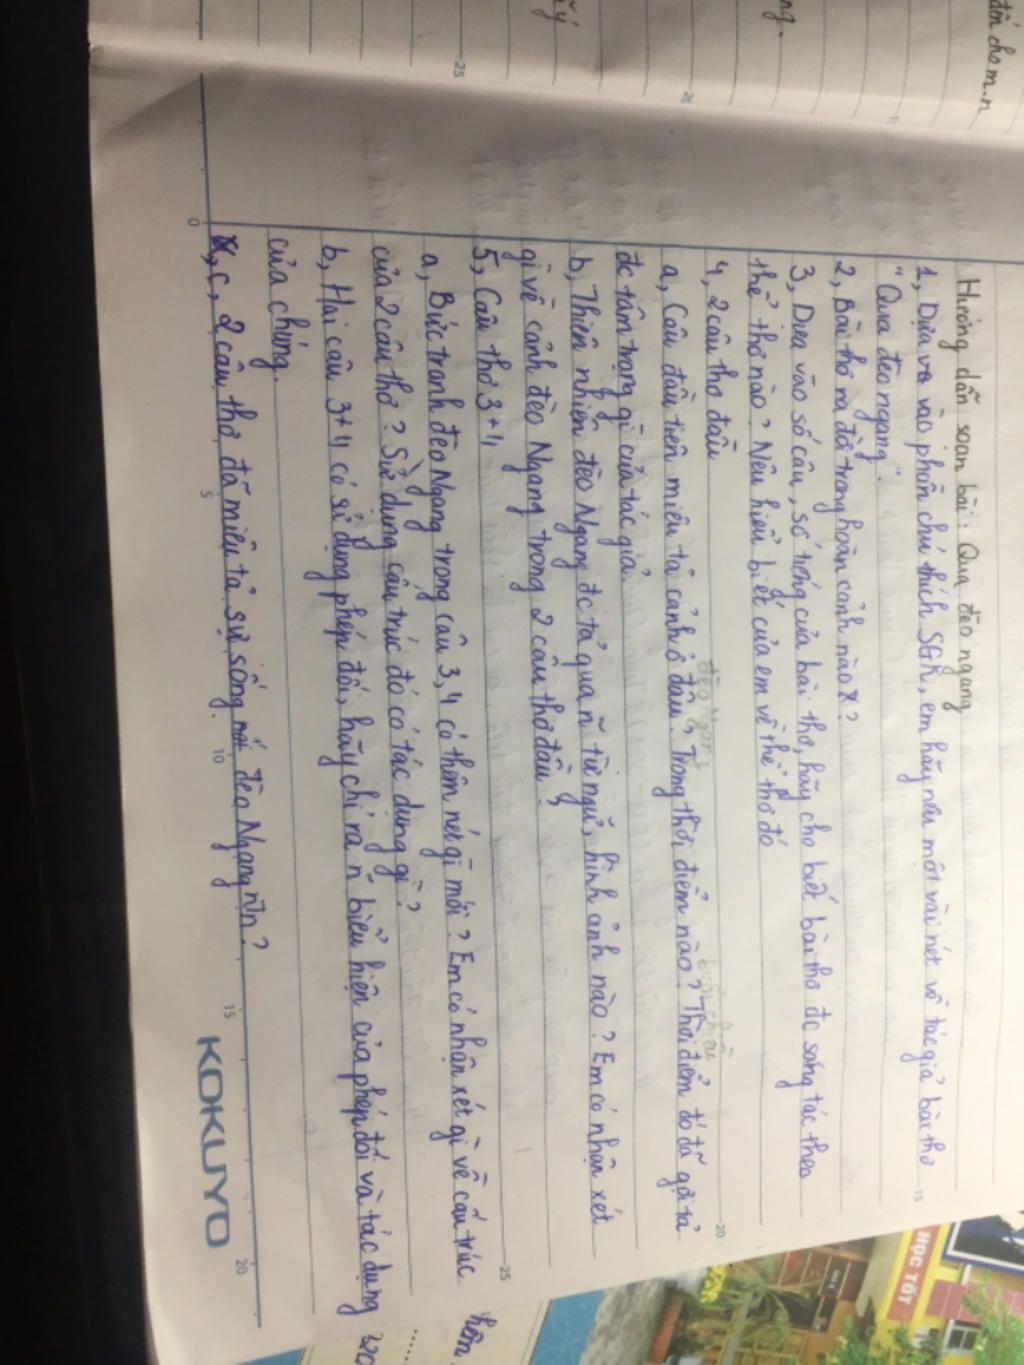 đến cho m.n
ng.
ý
Hướng dẫn soạn bài: Qua đèo ngang
1, Dựa vào phần chú thích SGK, em hãy nêu một vài nét về tác giả bài thơ
"Qua đèo ngang".
2, Bài thơ ra đời trong hoàn cảnh nào?
3, Dựa vào số câu, số tiếng của bài thơ, hãy cho biết bài thơ đc sáng tác theo
thể thơ nào? Nêu hiểu biết của em về thể thơ đó
4, 2 câu thơ đầu
đèo Ngang
a, Câu đầu tiên miêu tả cảnh ở đâu? Trong thời điểm nào? Thời điểm đó đã gợi tả
đc tâm trạng gì của tác giả.
b, Thiên nhiên đèo Ngang đc tả qua ~ từ ngữ, hình ảnh nào? Em có nhận xét
gì về cảnh đèo Ngang trong 2 câu thơ đầu?
5, Câu thơ 3+4
a, Bức tranh đèo Ngang trong câu 3,4 có thêm nét gì mới? Em có nhận xét gì về cấu trúc
của 2 câu thơ? Sử dụng cấu trúc đó có tác dụng gì?
b, Hai câu 3+4 có sử dụng phép đối, hãy chỉ ra ~ biểu hiện của phép đối và tác dụng
của chúng.
c, 2 câu thơ đã miêu tả sự sống đèo Ngang ntn?
KOKUYO
HỌC TỐT